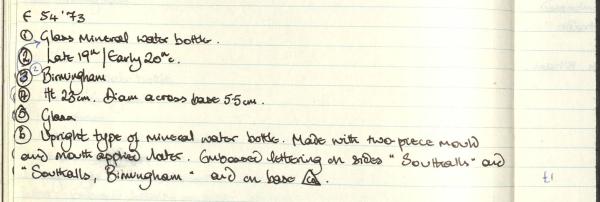 F 54'73
① Glass Mineral water bottle.
② Late 19th/Early 20th c.
③ ② Birmingham
④ Ht 23cm. Diam across base 5.5cm.
⑤ Glass
⑥ Upright type of mineral water bottle. Made with two-piece mould
and mouth applied later. Embossed lettering on sides "Southalls" and
"Southalls, Birmingham" and on base